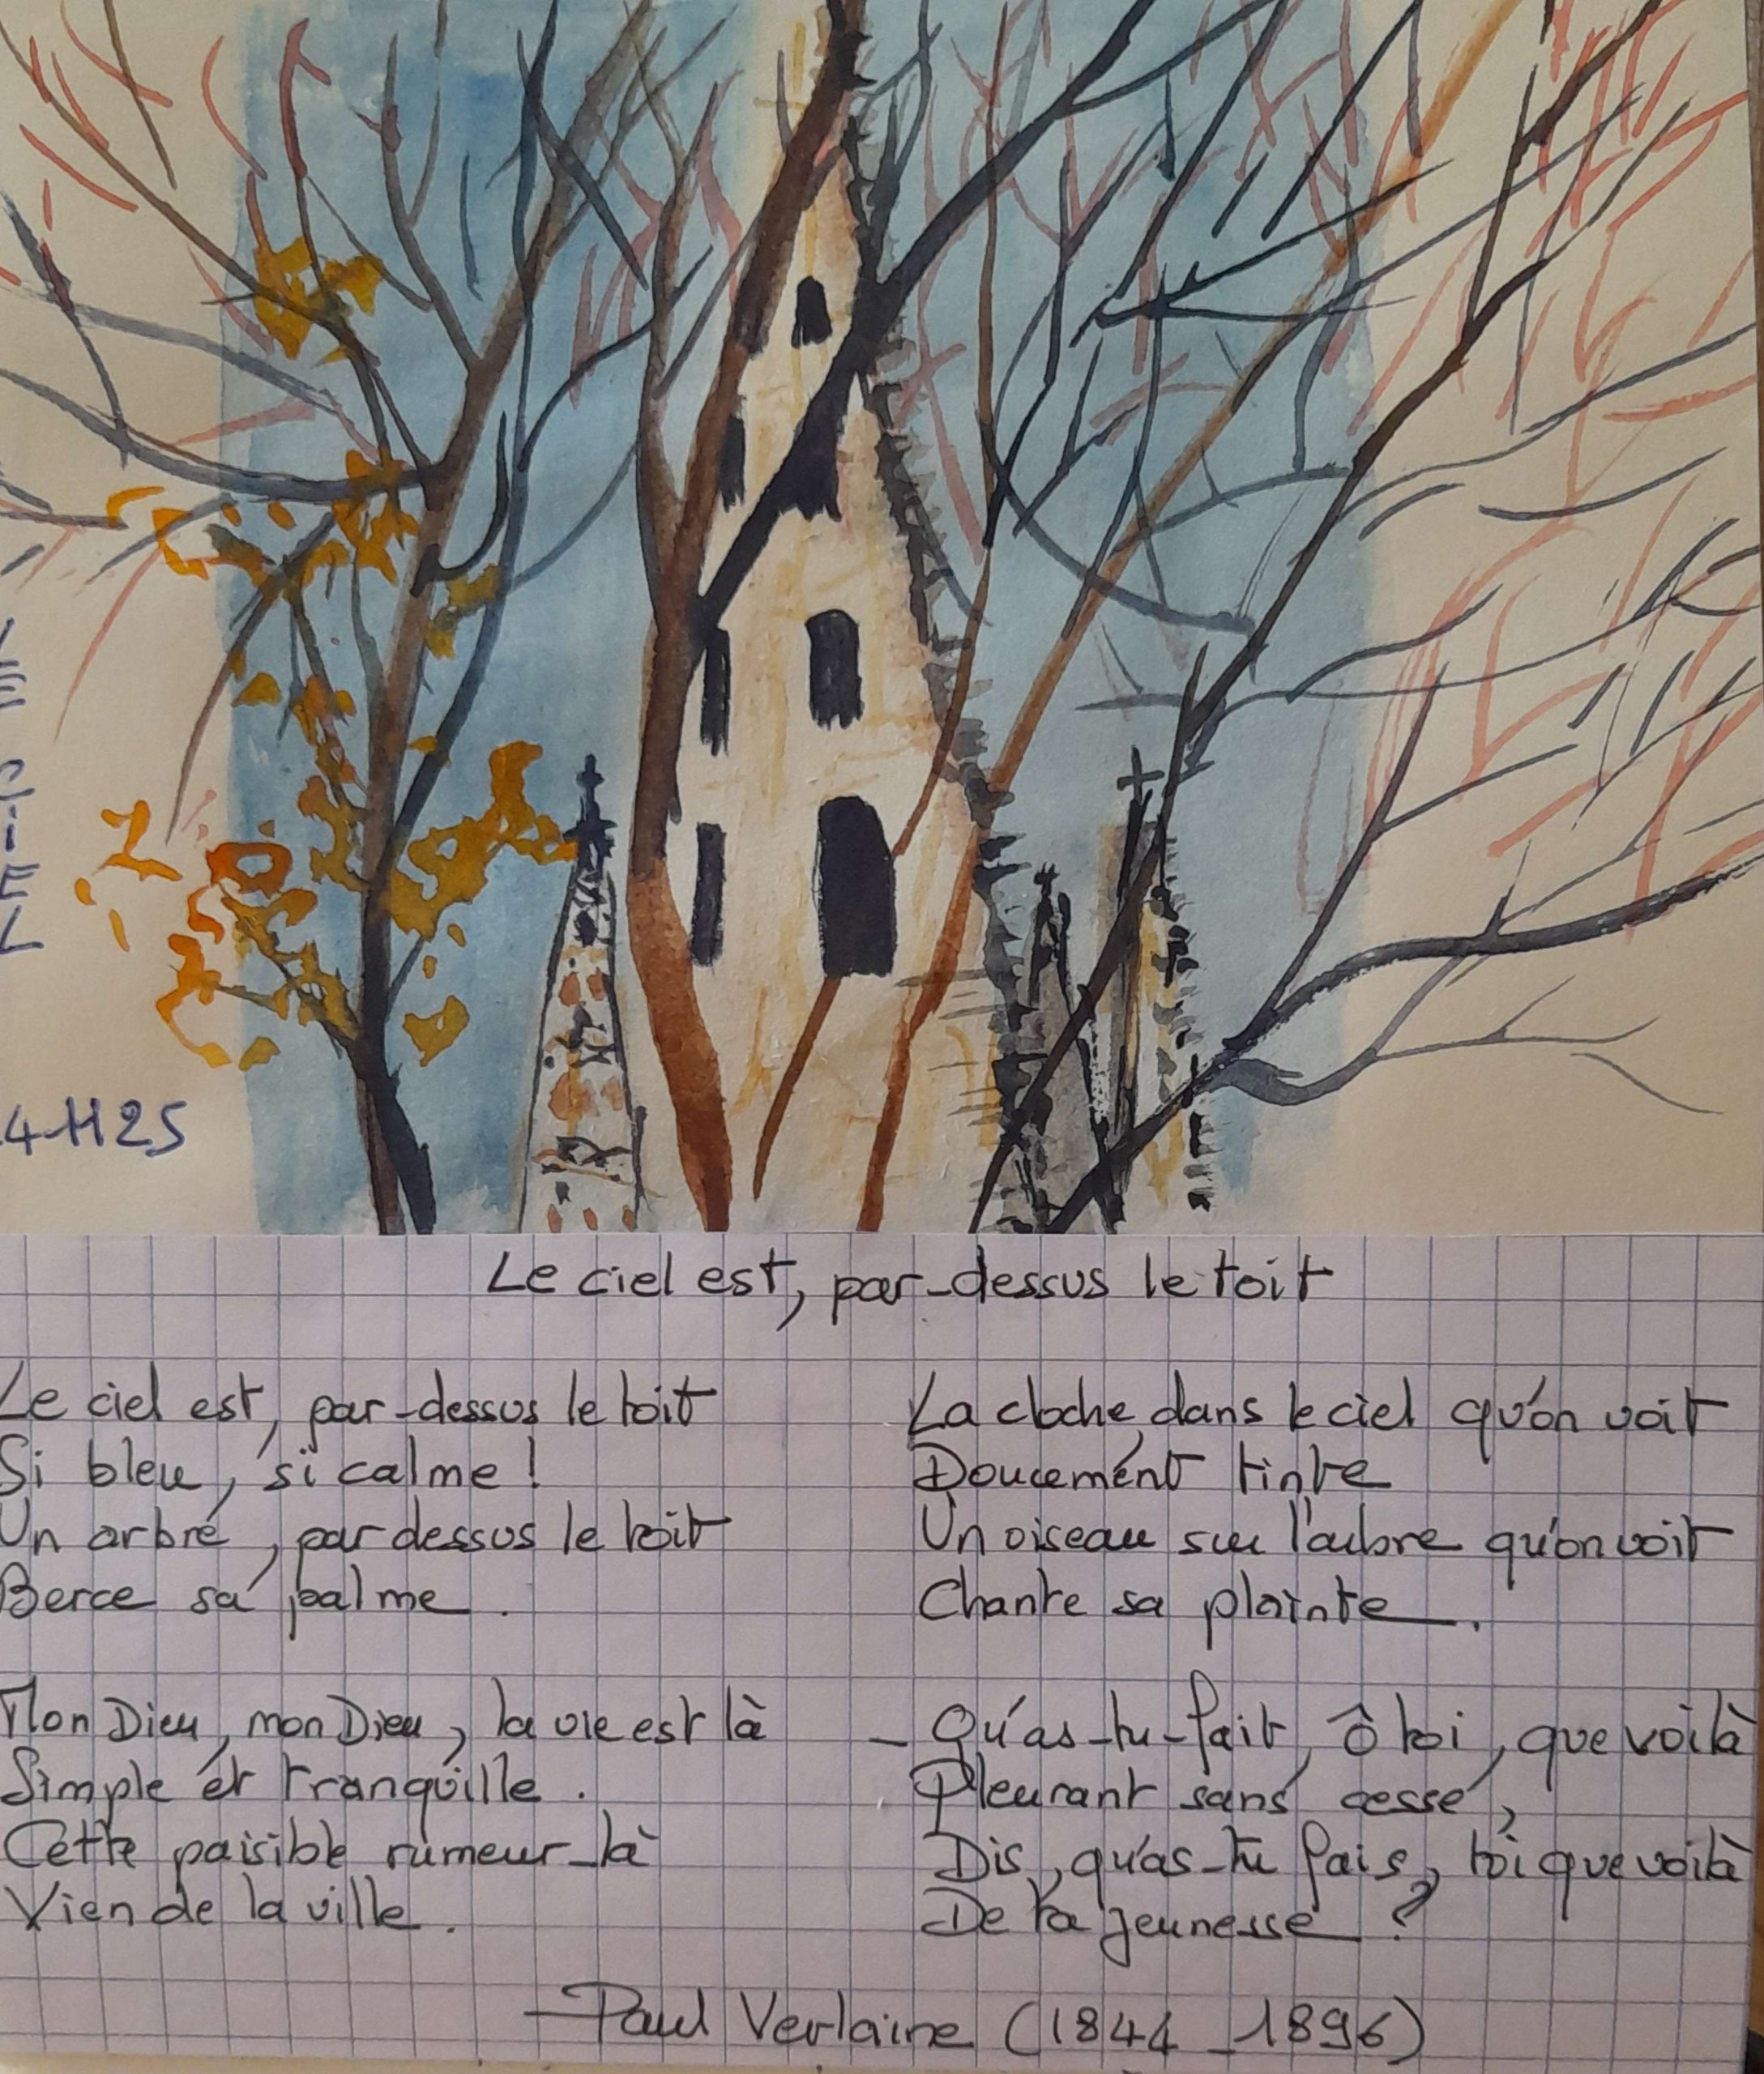 LE CIEL
4-11 25
Le ciel est, par-dessus le toit
Le ciel est, par-dessus le toit
Si bleu, si calme !
Un arbre, par dessus le toit
Berce sa palme.
Mon Dieu, mon Dieu, la vie est là
Simple et tranquille.
Cette paisible rumeur-là
Vien de la ville.
La cloche, dans le ciel qu'on voit
Doucement tinte
Un oiseau sur l'arbre qu'on voit
Chante sa plainte.
- Qu'as-tu-fait, ô toi, que voilà
Pleurant sans cesse,
Dis, qu'as-tu fais, toi que voilà
De ta jeunesse ?
Paul Verlaine (1844-1896)